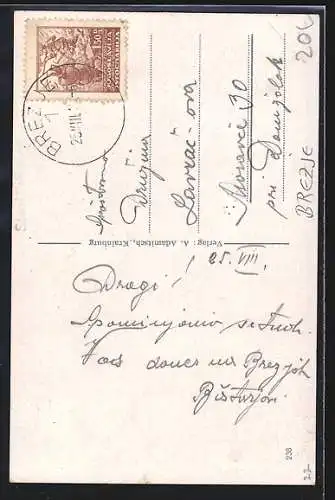 BREZ
1
25.VIII.
1.50 P
JUGOSLAVIJA
Družina
Lavrač-ova
30
pri Domžalah
BREZJE
20
Verlag: A. Adamitsch, Krainburg
25. VIII.
Dragi!
Spominjamo se tudi
Vas danes na Brezjah
236
22